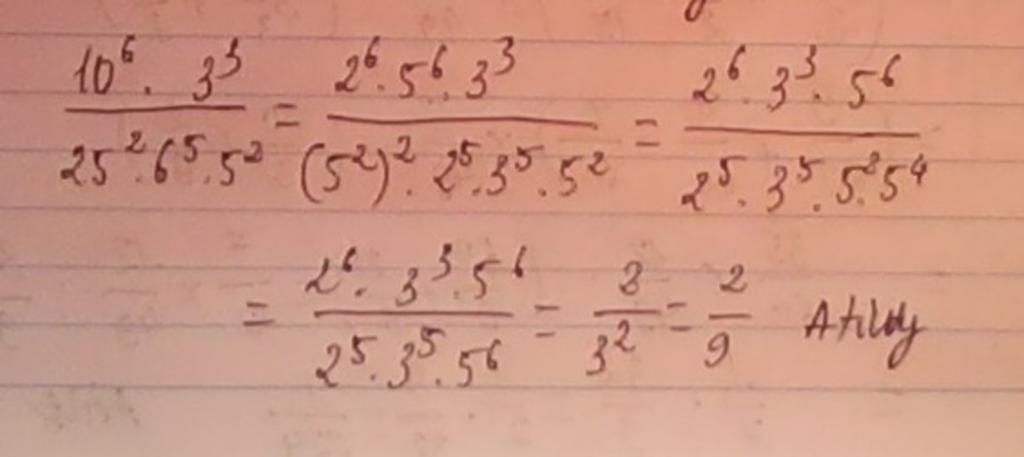 10⁶ · 3³ / 25² · 6⁵ · 5² = 2⁶ · 5⁶ · 3³ / (5²)² · 2⁵ · 3⁵ · 5² = 2⁶ · 3³ · 5⁶ / 2⁵ · 3⁵ · 5² · 5⁴
= 2⁶ · 3³ · 5⁶ / 2⁵ · 3⁵ · 5⁶ = 2 / 3² = 2 / 9